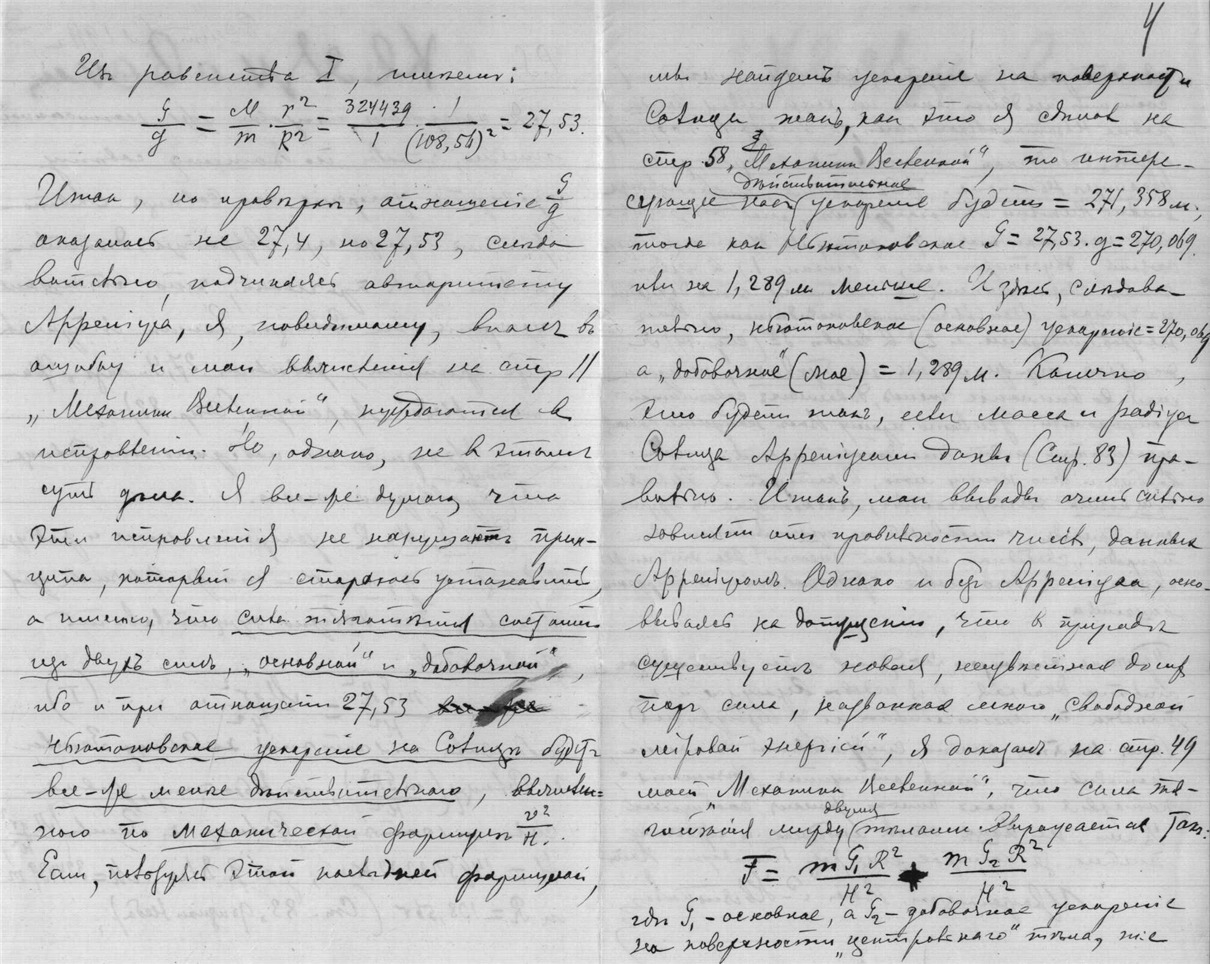 Изъ равенства I, имѣемъ:
G/g = M/m · r²/R² = 324439/1 · 1/(108,56)² = 27,53.
Итак, по провѣркѣ, отношеніе G/g
оказалось не 27,4, но 27,53, слѣдо
вательно, подчиняясь авторитету
Арреніуса, я, повидимому, впалъ въ
ошибку и мои вычисленія на стр 11
„Механики Вселенной", нуждаются в
исправленіи. Но, однако, не в этомъ
суть дѣла. Я все-же думаю, что
эти исправленія не нарушаютъ прин-
ципа, который я стараюсь установить,
а именно, что сила тяготѣнія состоитъ
изъ двухъ силъ, „основной" и „добавочной",
ибо и при отношеніи 27,53
Ньютоновское ускореніе на Солнцѣ будетъ
все-же менѣе дѣйствительного, вычислен=
ного по механической формулѣ v²/H.
Если, пользуясь этой последней формулой,
4
мы найдемъ ускореніе на поверхности
Солнца такъ, как это я сделал на
стр. 58, „Механики Вселенной", то интере-
дѣйствительное
сующее насъ ускореніе будетъ = 271,358 м.,
тогда как Ньютоновское G = 27,53. g = 270,069.
или на 1,289 м меньше. И здѣсь, слѣдова-
тельно, ньютоновское (основное) ускореніе = 270,069
а „добавочное" (мое) = 1,289 м. Конечно,
это будетъ такъ, если масса и радіус
Солнца Арреніусомъ даны (Стр. 83) пра-
вильно. Итакъ, мои выводы очень сильно
зависятъ отъ правильности чиселъ, данных
Арреніусомъ. Однако и безъ Арреніуса, осно-
вываясь на допущеніи, что в природѣ
существуетъ новая, неизвѣстная до сихъ
поръ сила, названная мною „свободной
міровой энергіей", я доказалъ на стр. 49
моей „Механики Вселенной", что сила тя-
двумя
готѣнія между тѣлами выражается такъ:
F = m G₁ R²/H² + m G₂ R²/H²
гдѣ G₁ - основное, а G₂ - добавочное ускореніе
на поверхности „центрального" тѣла,